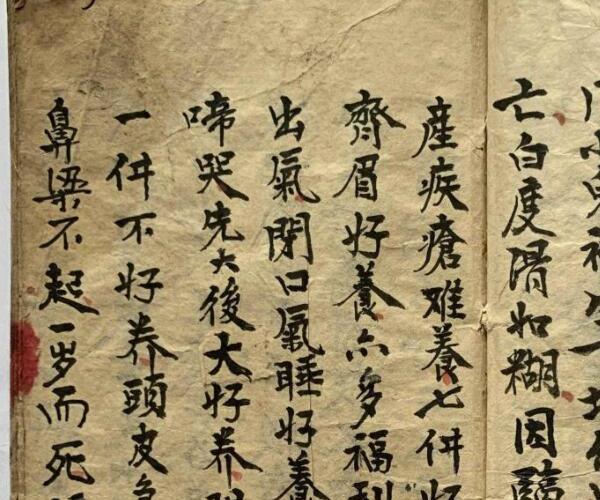 亡白度滑如糊因臨
産疾瘡难養七件好
齊眉好養亦多福利
出氣閉口氣睡好養
啼哭先大後大好养
一件不好养頭皮急
鼻梁不起一岁而死